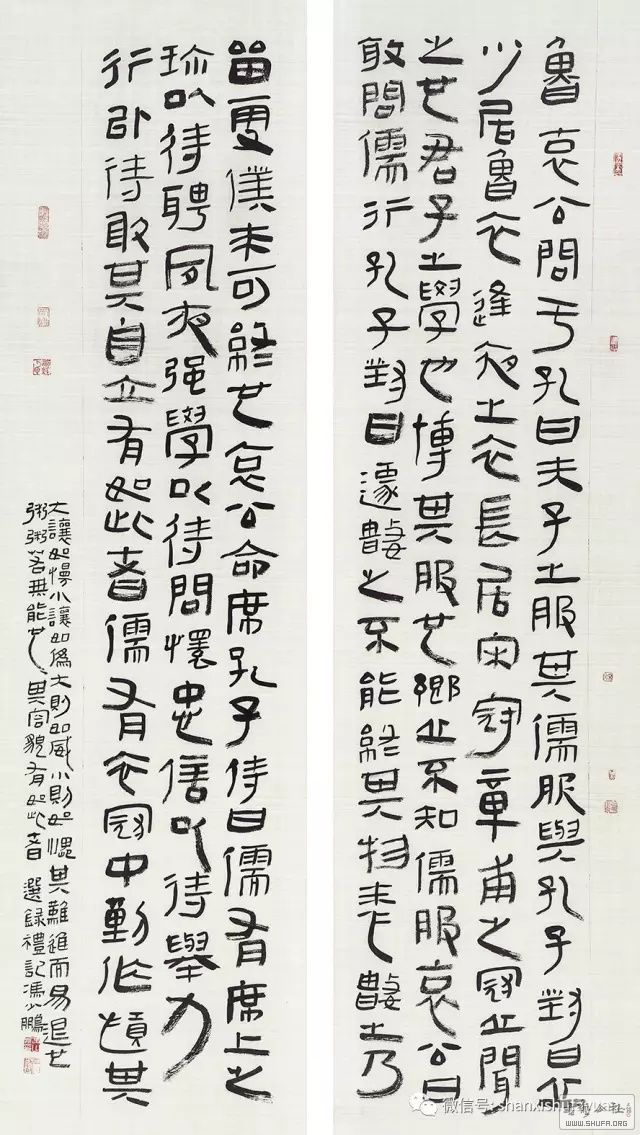 魯哀公問于孔曰夫子之服其儒服與孔子對曰丘
少居魯衣逢夜之衣長居宋冠章甫之冠丘聞
之也君子之學也博其服也鄉丘不知儒服哀公曰
敢問儒行孔子對曰遽數之不能終其物悉數之乃
留更僕未可終也哀公命席孔子侍曰儒有席上之
珍以待聘夙夜强學以待問懷忠信以待舉力
行以待取其自立有如此者儒有衣冠中動作慎其
大讓如慢小讓如偽大則如威小則如愧其難進而易退也
粥粥若無能也其容貌有如此者 選錄禮記馮鵬
微信号: shanxishufayuan
WWW.SHUFA.ORG